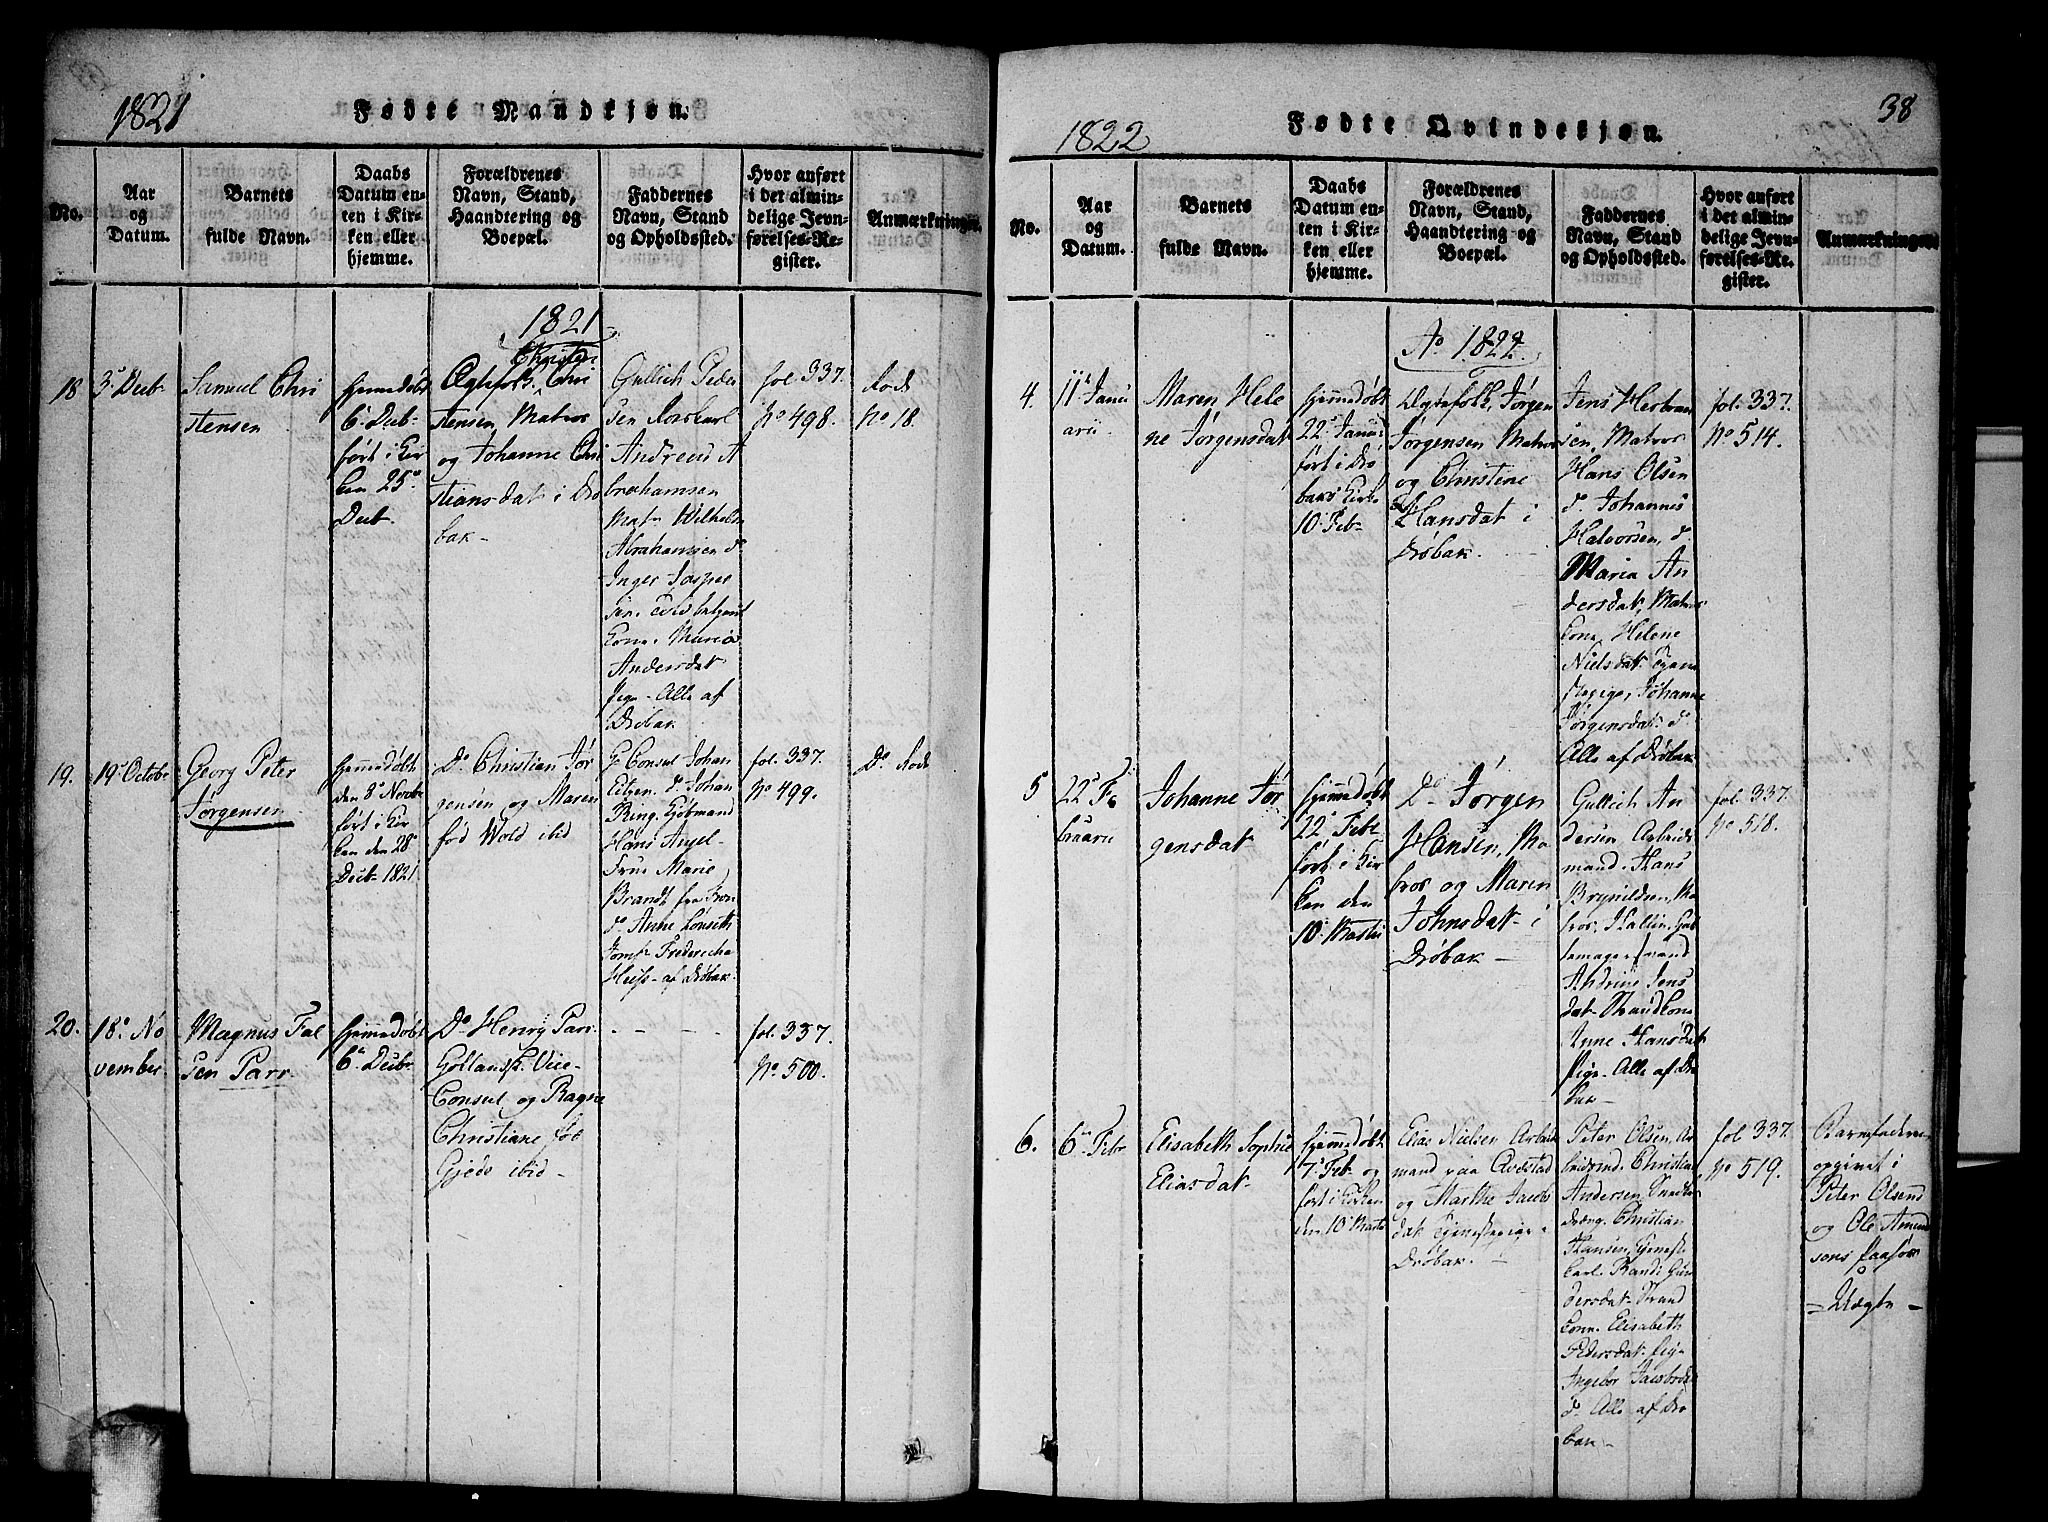 1821
Fødte Mandkjøn.
No.
Aar
og
Datum.
Barnets
fulde Navn.
Daabs
Datum en-
ten i Kir-
ken eller
hjemme.
Forældrenes
Navn, Stand,
Haandtering og
Boepæl.
Faddernes
Navn, Stand
og Opholdssted.
Hvor anført
i det almin-
delige Jevn-
førelses-Re-
gister.
Anmærkninger.
1821
18
3die Decbr
Samuel Chri
stensen
hjemmedøbt
6te Decbr
ført i Kir
ken 25de
Decbr.
Ægtefolk Christen
Chri
stensen, Matros
og Johanne Chri
stiansdatr i Drø
bak -
Gullich Peder
sen
Andreas A
brahamsen
Matr Wilhelm
Abrahamsen do
Inger Jaspersen
Kone. Maria
Andersdatr
Pige. Alle af
Drøbak
fol. 337.
No 498.
Rode
No 18.
19.
19de Octobr
Georg Peter
Jørgensen
hjemmedøbt
den 8de Novbr
ført i Kir
ken den 28de
Decbr 1821
Do Christian Jør
gensen og Maren
fød Wold ibid
Consul Johan
do Johan
Ring. Kjøbmand
Hans Angel
Frue Marie
Brandt fra
do Anne Lønseth
Jomfr Frederiche
Heils - af Drøbak
fol. 337.
No 499.
Do Rode
20.
18de No
vember
Magnus Fal
sen Parr
hjemmedøbt
6te Decbr
Do Henry Parr
Hollandsk Vice-
Consul og Ragne
Christiane fød
Gjede ibid -
- - -
fol. 337.
No 500.
38
1822
Fødte Qvindekjøn.
No.
Aar
og
Datum.
Barnets
fulde Navn.
Daabs
Datum en-
ten i Kir-
ken eller
hjemme.
Forældrenes
Navn, Stand,
Haandtering og
Boepæl.
Faddernes
Navn, Stand
og Opholdssted.
Hvor anført
i det almin-
delige Jevn-
førelses-Re-
gister.
Anmærkninger.
Ao 1822.
4.
11te Janu
arii
Maren Hele
ne Jørgensdatr
hjemmedøbt
22de Janu:
ført i Drø
baks Kirke
10de Febr
Ægtefolk, Jørgen
Jørgensen Matros
og Christine
Hansdatr i
Drøbak.
Jens Herbran
sen, Matros
Hans Olsen
do Johannes
Halvorsen, do
Maria An
dersdatr, Matros
Kone, Helene
Nielsdatr Tjene
stepige, Johanne
Jørgensdatr do
Alle af Drøbak
fol. 337.
No 514.
5
22de Fe
bruarii
Johanne Jør
gensdatr
hjemmedøbt
22de Febr
ført i Kir
ken den
10de Martii
Do Jørgen
Hansen, Ma
tros og Maren
Johnsdatr i
Drøbak -
Gullich An
dersen Arbeids
mand. Hans
Brynildsen, Ma
tros,
Andrine Jens
datr
Anne Hansdatr
Pige. Alle af Drø
bak -
fol. 337.
No 518.
6.
6te Febr
Elisabeth Sophie
Eliasdatr
hjemmedøbt
7de Febr og
ført i Kirken
den 10de Martii
Elias Nielsen Arbeids
mand paa
og Marthe Jacobs
datr Tjenestepige i
Drøbak. -
Peter Olsen, Ar
beidsmd. Christian
Andersen Snedker
dreng. Christian
Hansen, Tjeneste
karl. Randi Gun
dersdatr
Kone. Elisabeth
Pedersdatr Pige
Ingebor Jacobsdatr
do Alle af Drø
bak -
fol 337.
No 519.
Barnefaderen
opgivet i
Peter Olsens
og Ole Amund
sens Paasyn
- Uægte -